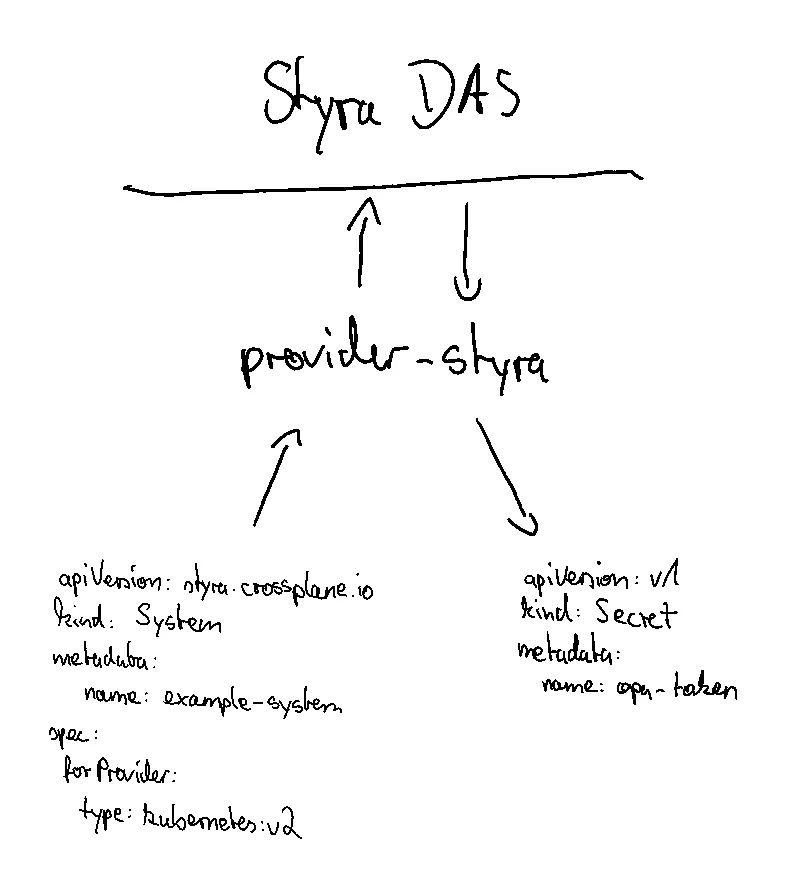 Styra DAS
provider-styra
apiVersion: styra.crossplane.io
kind: System
metadata:
name: example-system
spec:
forProvider:
type: kubernetes:v2
apiVersion: v1
kind: Secret
metadata:
name: opa-token